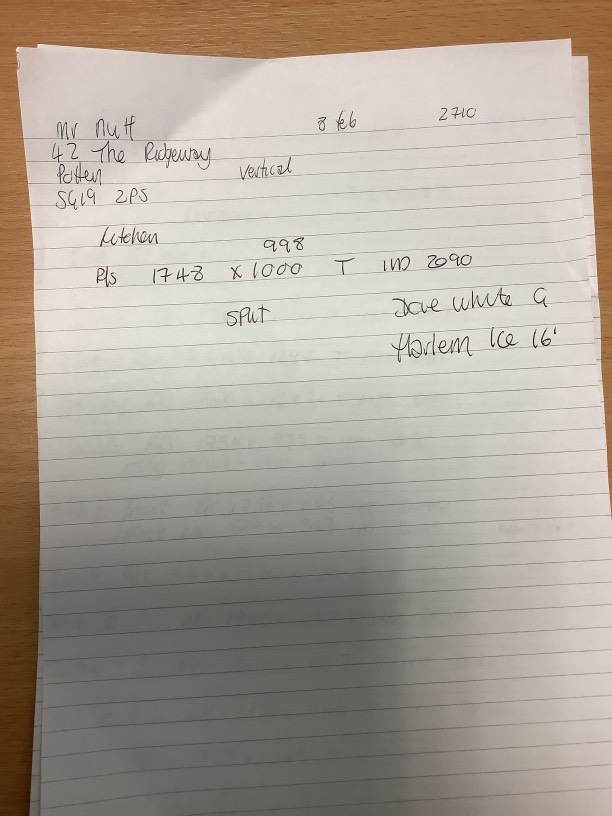 Mr Nutt 8 Feb 2710
42 The Ridgeway
Potten Vertical
SG19 2PS
Kitchen 998
P/s 1748 X 1000 T IND 2090
SPLIT Dove White G
Harlem Ice 16'